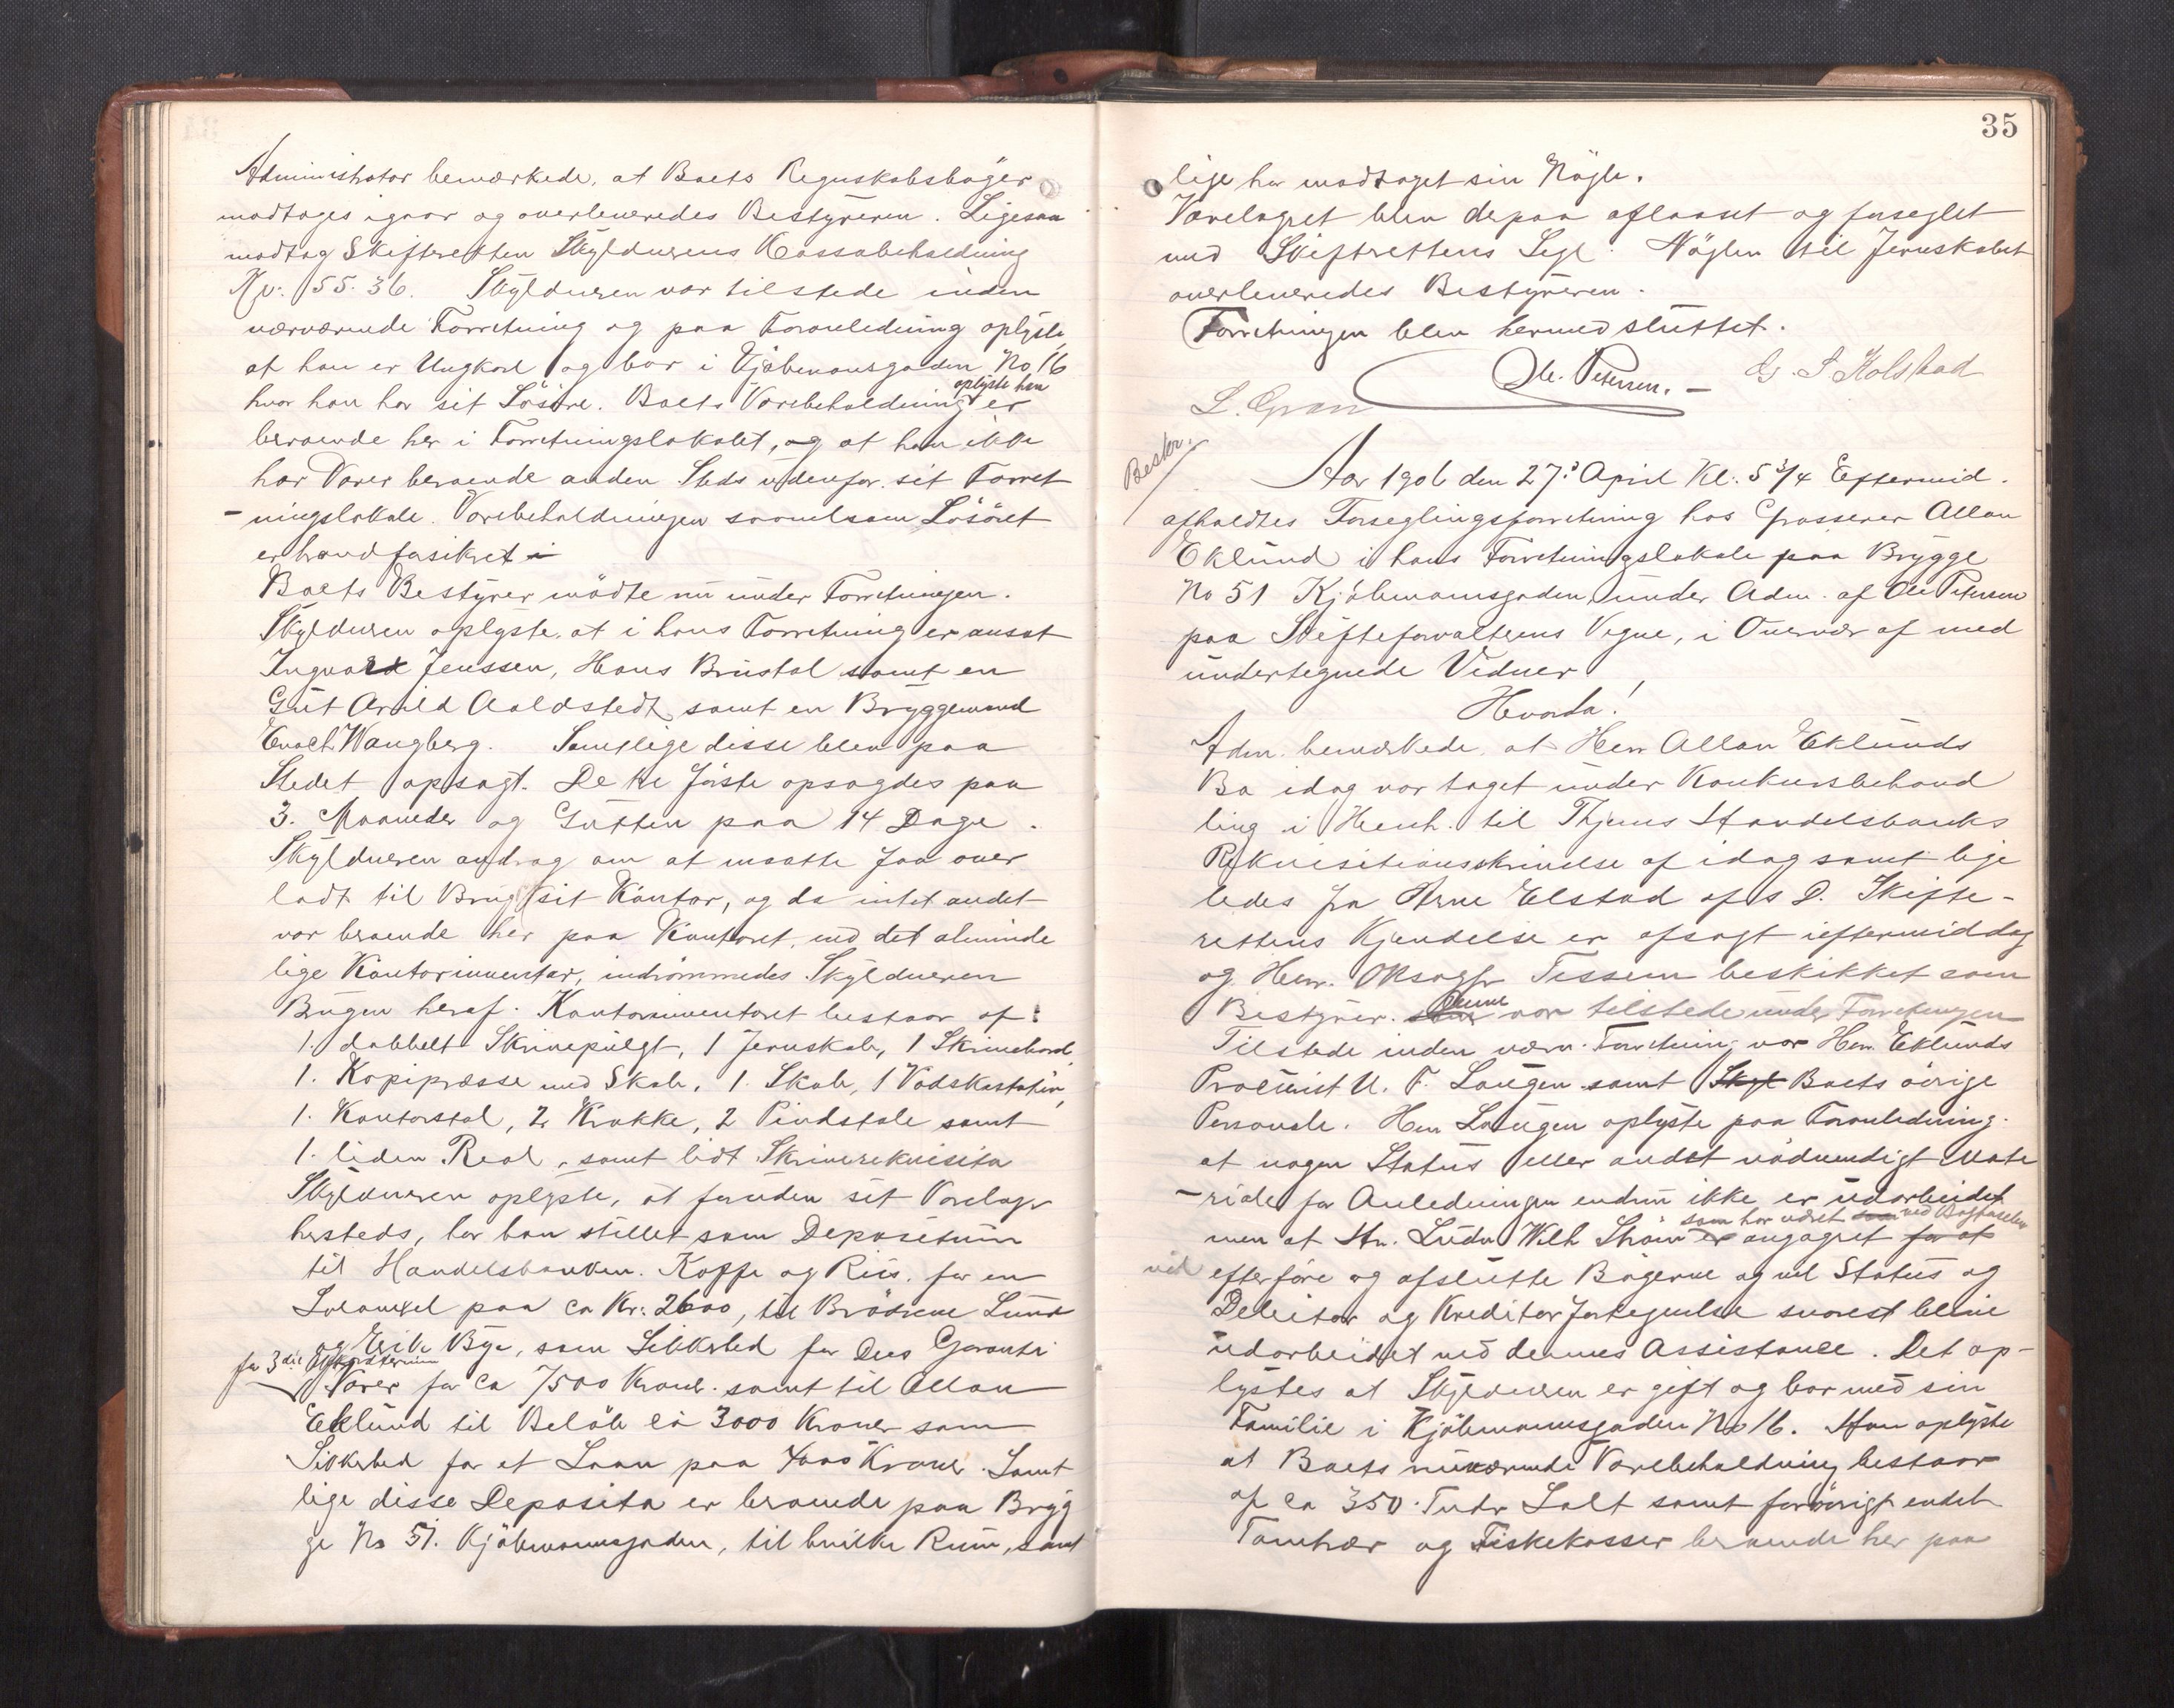 Administrator bemærkede, at Boets Regnskabsbøger
modtoges igaar og overleveredes Bestyreren. Ligesaa
modtog Skifteretten Skyldnerens Kassabeholdning
Kr: 55.36. Skyldneren var tilstede inden
nærværende Forretning og paa Foranledning oplyste,
at han er Ungkarl og bor i Kjøbmansgaden No 16
hvor han har sit Løsøre. Boets Varebeholdning oplyste han er
beroende her i Forretningslokalet, og at han ikke
har Varer beroende anden Steds udenfor sit Forret
-ningslokale. Varebeholdningen saavelsom Løsøret
er brandforsikret i
Boets Bestyrer mødte nu under Forretningen.
Skyldneren oplyste, at i hans Forretning er ansat
Ingvald Jenssen, Hans Brustol samt en
Gut Arild Aaldstedt samt en Bryggemand
Enoch Wangberg. Samtlige disse blev paa
Stedet opsagt. De tre første opsagdes paa
3. Maaneder og Gutten paa 14 Dage.
Skyldneren androg om at maatte faa over
ladt til Brug sit Kontor, og da intet andet
var beroende her paa Kontoret, end det alminde
lige Kontorinventar, indrømmedes Skyldneren
Brugen heraf. Kontorinventaret bestaar af:
1. dobbelt Skrivepulgt, 1 Jernskab, 1 Skrivebord,
1. Kopipresse med Skab, 1. Skab, 1 Vadskestativ,
1. Kontorstol, 2 Krakke, 2 Pindstole samt
1. liden Reol, samt lidt Skriverekvisita
Skyldneren oplyste, at foruden sit Varelager
hersteds, har han stillet som Depositum
til Handelsbanken. Kaffe og Riis. for en
Solavexel paa ca Kr: 2600, til Brødrene Lund
og Erik Bye, som Sikkerhed for Deres Garanti
for 3die
Varer for ca 7500 Kroner. samt til Allan
Eklund til Beløb ca 3000 Kroner som
Sikkerhed for et Laan paa 4000 Kroner. Samt
lige disse Deposita er beroende paa Bryg
ge No 51. Kjøbmannsgaden, til hvilke Rum, samt
35
lige har modtaget sin Nøgle.
Varelagret blev derpaa aflaaset og forseglet
med Skifterettens Segl. Nøglen til Jernskabet
overleveredes Bestyreren.
Forretningen blev hermed sluttet.
Ole. Petersen. – G. S Kolstad
L. Gran
Beskr.
Aar 1906 den 27: April Kl: 5 3/4 Eftermid.
afholdtes Forseglingsforretning hos Grosserer Allan
Eklund i hans Forretningslokale paa Brygge
No 51 Kjøbmannsgaden, under Adm. af Ole Petersen
paa Skifteforvalterens Vegne, i Overvær af med
undertegnede Vidner
Hvorda!
Adm. bemærkede, at Herr Allan Eklunds
Bo idag var taget under Konkursbehand
ling i Henh. til Thjems Handelsbanks
Rekvisitionsskrivelse af idag samt lige
ledes fra Arne Elstad af s D. Skifte-
rettens Kjendelse er afsagt i eftermiddag
og Herr. ORsagfr Tessem beskikket som
Bestyrer. Denne var tilstede under Forretningen
Tilstede inden nærv. Forretning var Herr. Eklunds
Procurist U. F. Laugen samt Skyl Boets øvrige
Personale. Herr Laugen oplyste paa Foranledning.
at nogen Status eller andet nødvendigt Mate
-riale for Anledningen endnu ikke er udarbeidet
som har været som ved Bogførselen
men at Hr. Ludv Wilh Strøm er engageret for at
ved efterføre og afslutte Bøgerne og vil Status og
Debitor og Kreditorfortegnelse snarest blive
udarbeidet med dennes Assistance. Det op-
lystes at Skyldneren er gift og bor med sin
Familie i Kjøbmannsgaden No 16. Han oplyste
at Boets nuværende Varebeholdning bestaar
af ca 350. Tndr Salt samt forøvrigt endel
Tomtrær og Fiskekasser beroende her paa